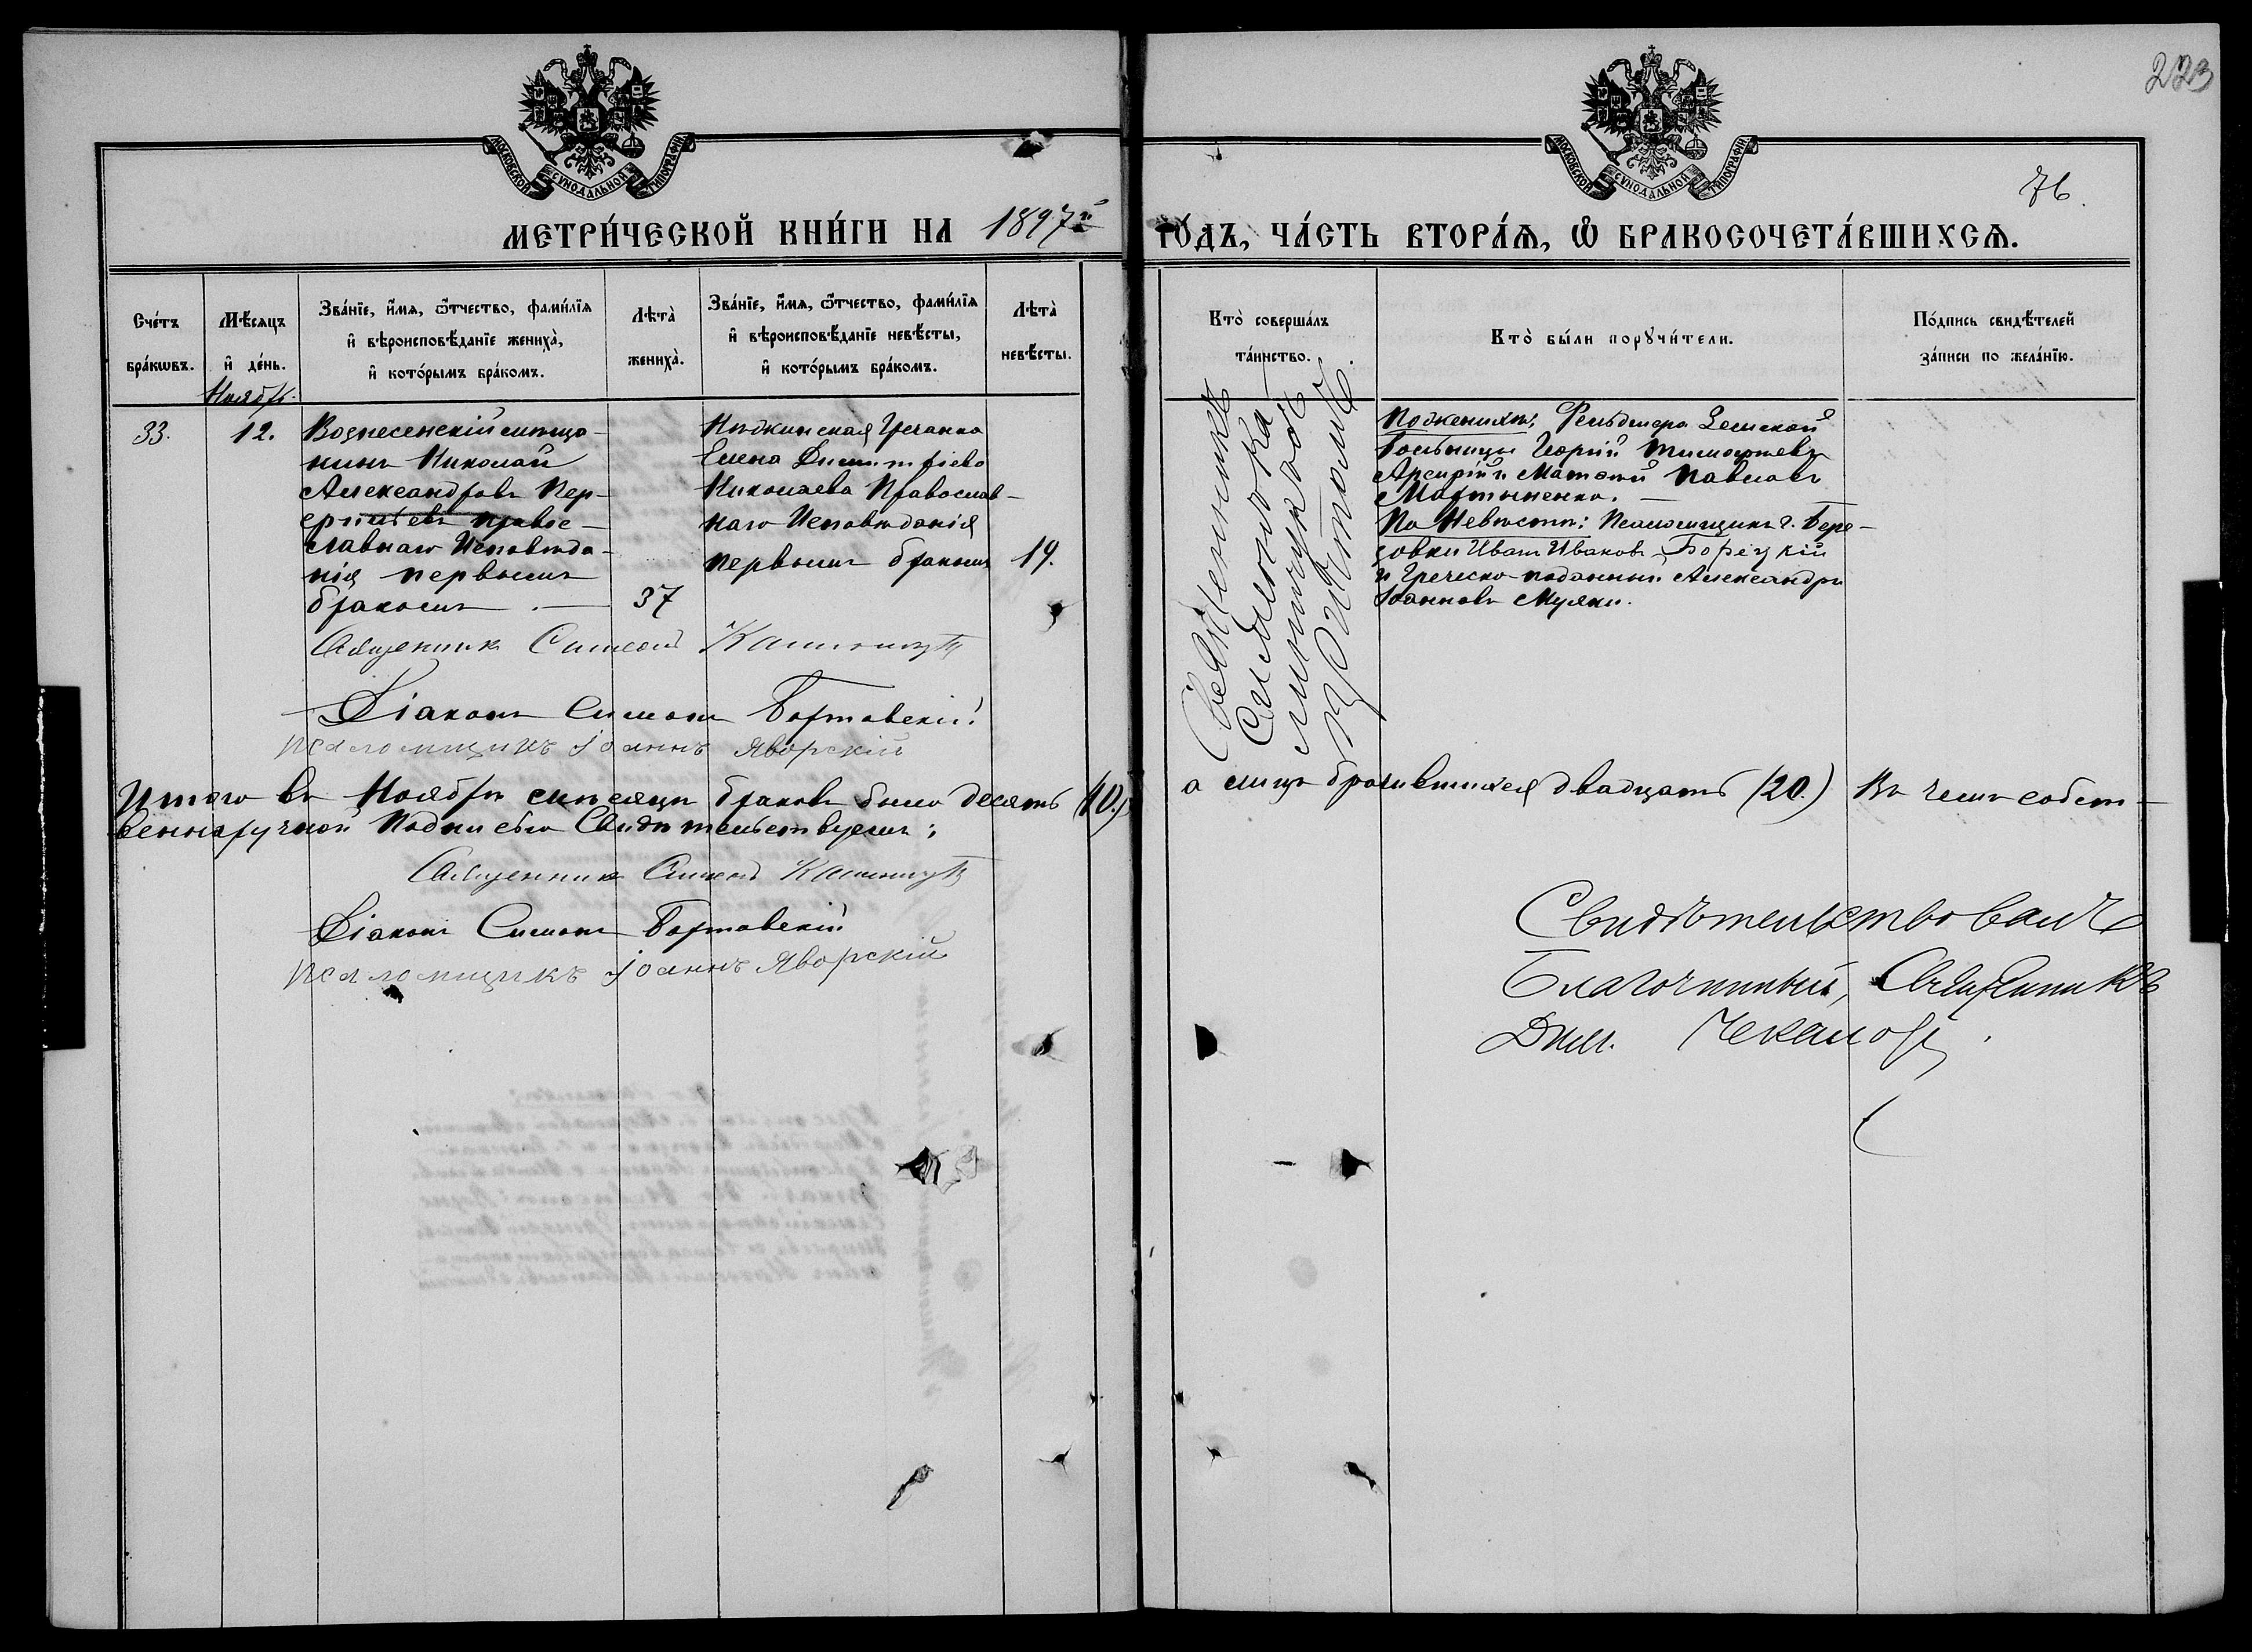 223
МОСКОВСКОЙ СУНОДАЛЬНОЙ ТИПОГРАФІИ
МОСКОВСКОЙ СУНОДАЛЬНОЙ ТИПОГРАФІИ
76.
МЕТРИ́ЧЕСКОЙ КНИ́ГИ НА 1897й ГО́ДЪ, ЧА́СТЬ ВТОРА́Ѧ, Ѽ БРАКОСОЧЕТА́ВШИХСѦ.
Сче́тъ
бра́кѡвъ.
Мѣ́сяцъ
и҆ де́нь.
Зва́нїе, и҆́мѧ, ѻ҆́тчество, фами́лїѧ
и҆ вѣроисповѣ́данїе жениха̀,
и҆ кото́рымъ бра́комъ.
Лѣта̀
жениха̀.
Зва́нїе, и҆́мѧ, ѻ҆́тчество, фами́лїѧ
и҆ вѣроисповѣ́данїе невѣ́сты,
и҆ кото́рымъ бра́комъ.
Лѣта̀
невѣ́сты.
Кто̀ соверша́лъ
та́инство.
Кто̀ бы́ли порꙋчи́тели.
По́дпись свидѣ́телей
за́писи по жела́нїю.
Ноябрь.
33.
12.
Вознесенскій мѣща-
нинъ Николай
Александровъ Пер-
православнаго Исповѣда-
нія первымъ
бракомъ.
37
Нѣжинская Гречанка
Елена Димитріева
Николаева Православ-
наго Исповѣданія
первымъ бракомъ
19.
Священникъ
Симеонъ Ка-
По женихѣ: Фельдшера Земской
больницы Георгій Тимофѣевъ
и Матѳей Павловъ
Мартыненко.
По Невѣстѣ: Псаломщикъ г. Бере-
зовки Иванъ Ивановъ Борецкій
и Греческо-подданный Александръ
Іоанновъ Муяки.
Священникъ Симеонъ
Діаконъ Симеонъ Бортовскій
Псаломщикъ Іоаннъ Яворскій
Итого въ Ноябрѣ мѣсяцѣ браковъ было десять (10.) а лицъ брачившихся двадцать (20.) Въ чемъ собст-
венноручной Подписью Свидѣтельствуемъ:
Священникъ Симеонъ
Діаконъ Симеонъ Бортовскій
Псаломщикъ Іоаннъ Яворскій
Свидѣтельствовалъ
Благочинный, Священникъ
Дим. Чекалов